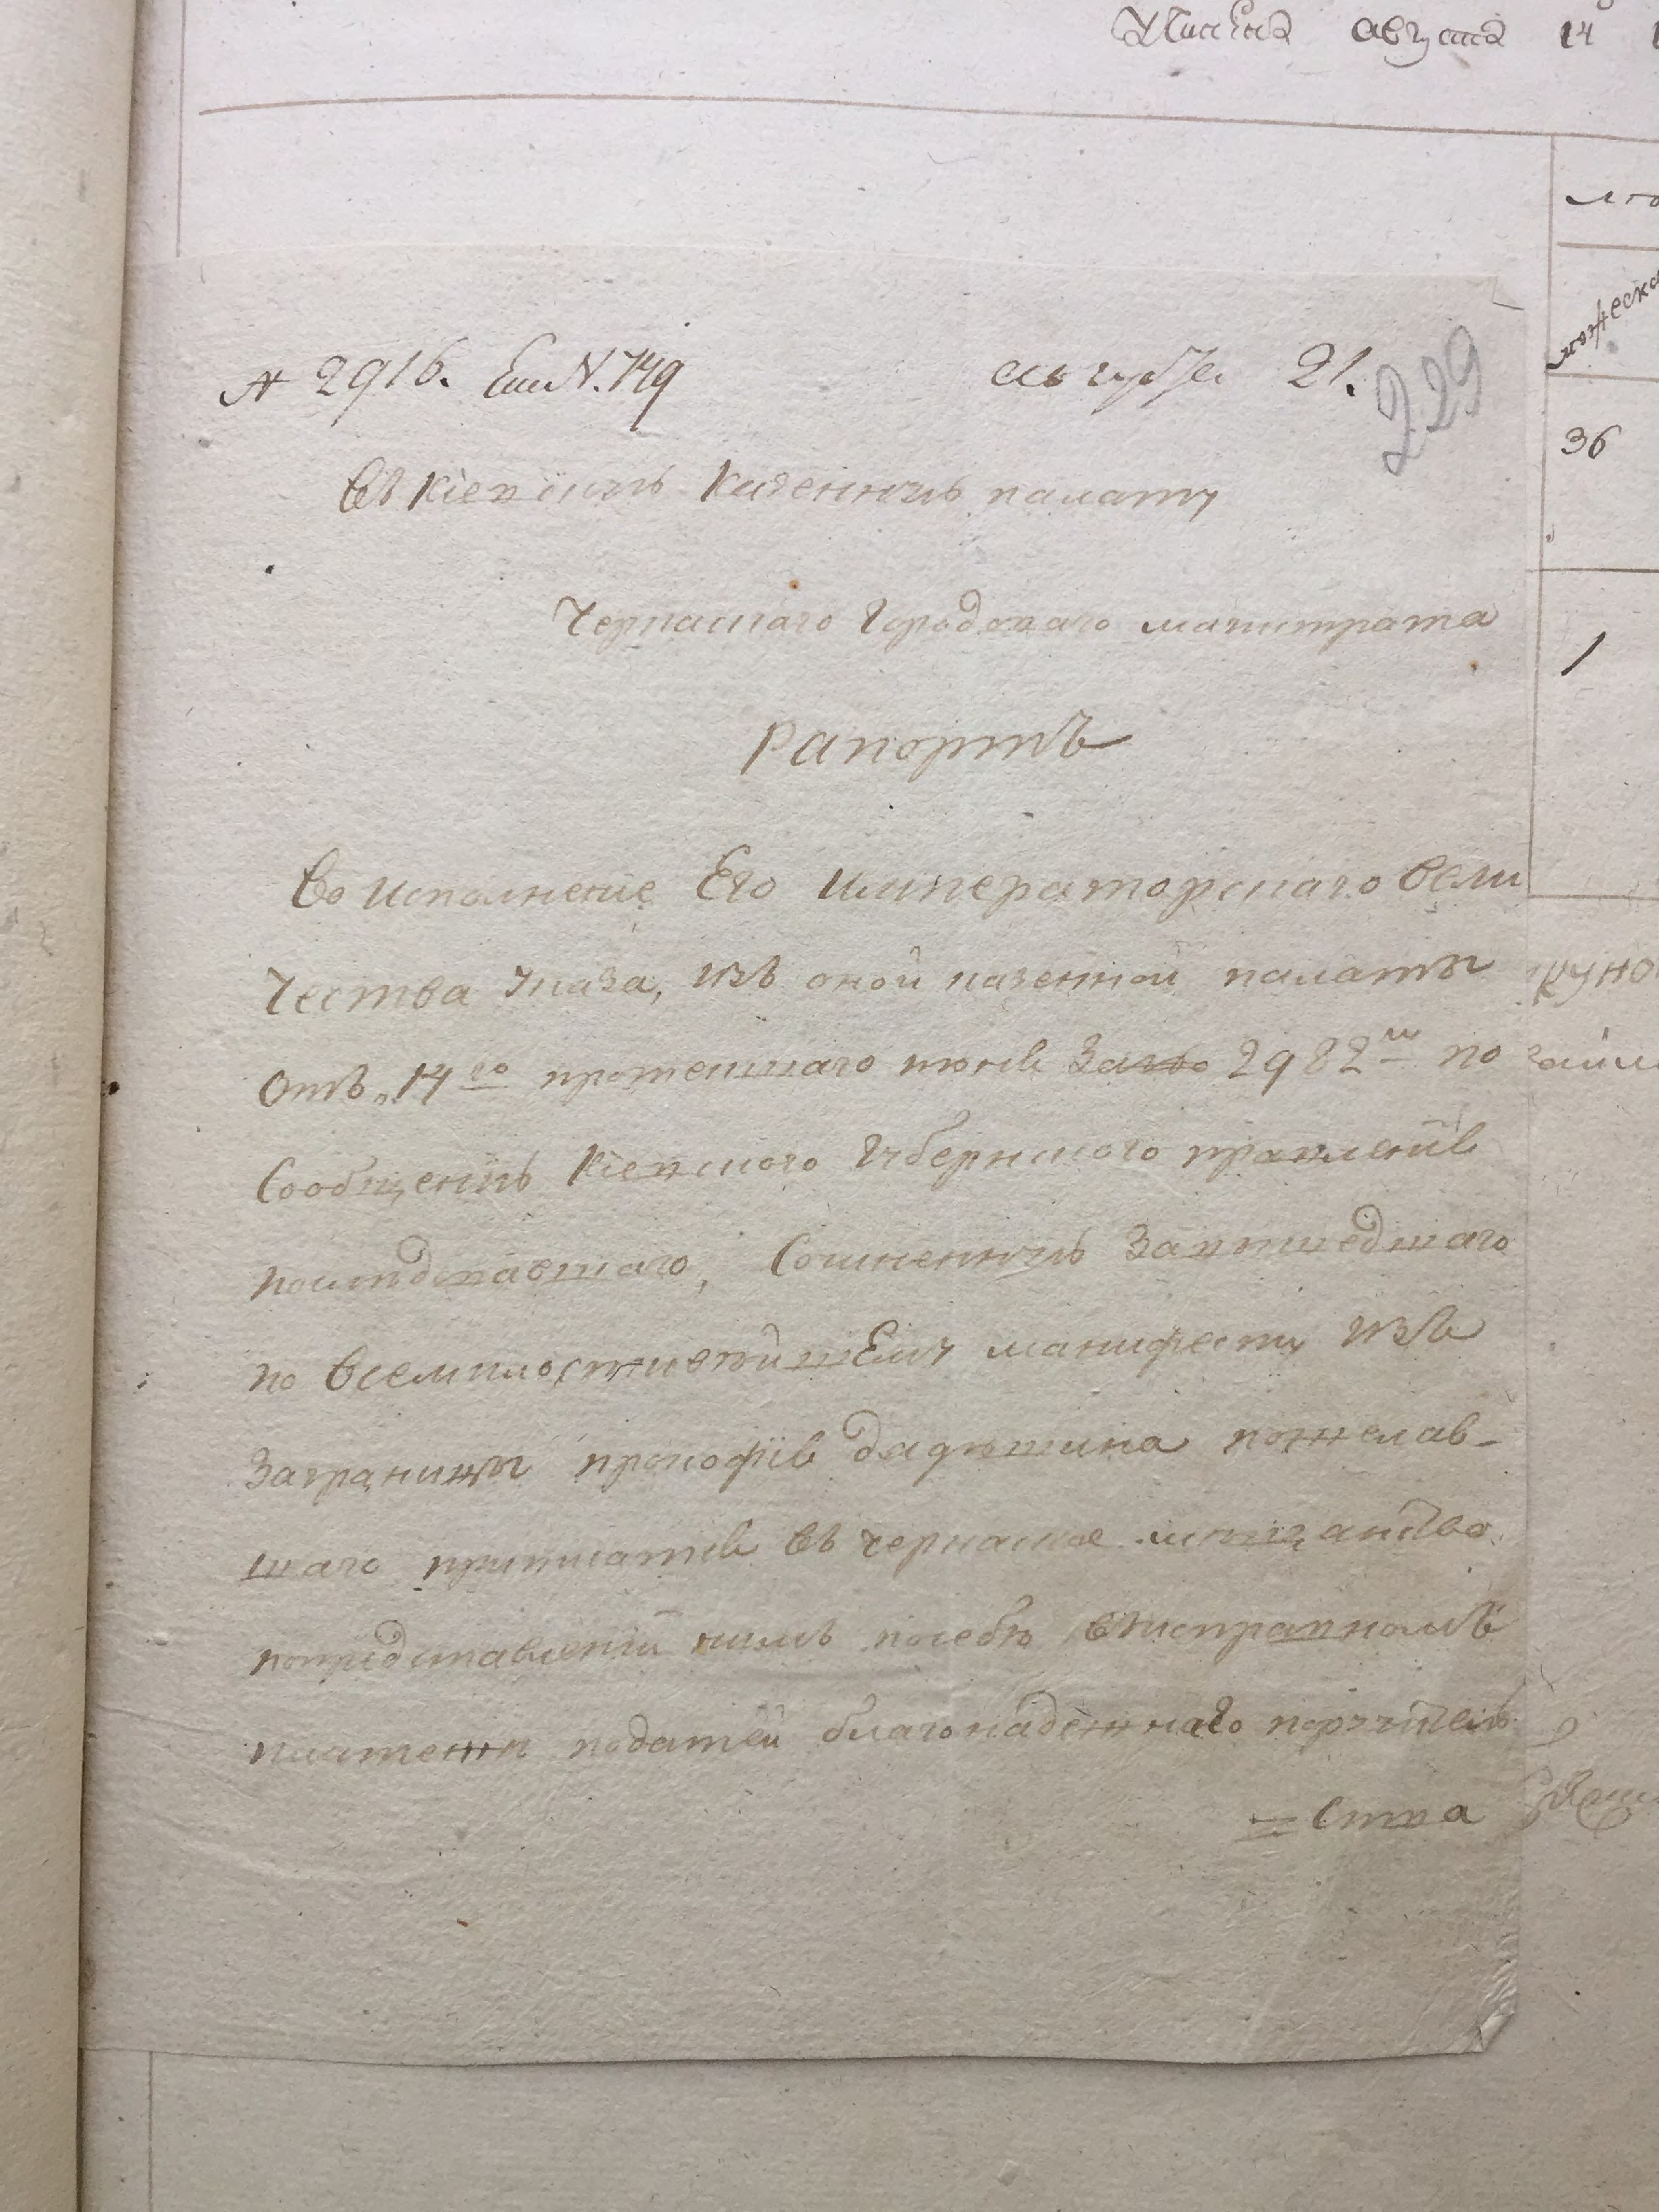 августа 14
№ 2916. августа 21.
229
Въ Кіевскую Казенную палату
36
Черкаскаго Городскаго магистрата
1
Рапортъ
Во исполненіе Его Императорскаго вели
чества указа, изъ оной казенной палаты
отъ 14го протекшаго іюня за №о 2982м по
Сообщенію Кіевского Губернского правленія
последовавшаго, О вышедшаго
по всемилостивейшему манифесту изъ
заграницы прокофія пожелав-
шаго приписатся въ черкаское мещанство
попредставленіи имъ посебе висправномъ
платеже податей благонадежнаго поручитель
=ства